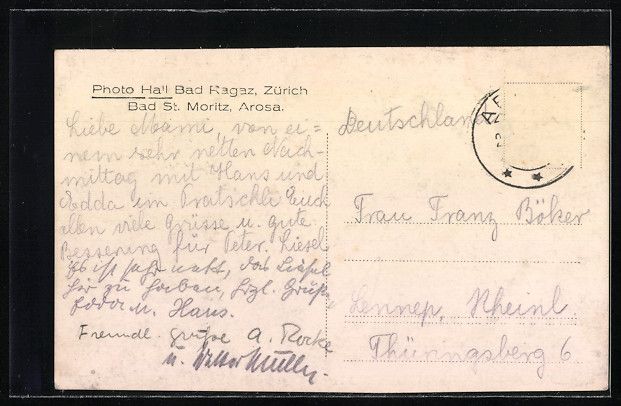 Photo Hall Bad Ragaz, Zürich
Bad St. Moritz, Arosa.
Liebe Mami, von ei=
nem sehr netten Nach-
mittag mit Hans und
Edda im Pratschli Euch
allen viele Grüsse u. gute
Besserung für Peter. Liesel
Es ist sehr nett, das Liesel
hier zu haben, hzl. Grüße
Edda u. Hans.
Freundl. Grüße A. 
u. Walter Müller.
Deutschland
Frau Franz Böker
Lennep, Rheinl.
Thüringsberg 6